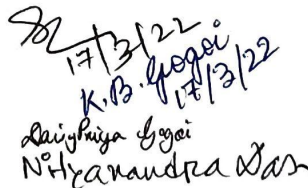 17/3/22
K.B. Gogoi
17/3/22
Daisy Priya Gogoi
Nityanandra Das